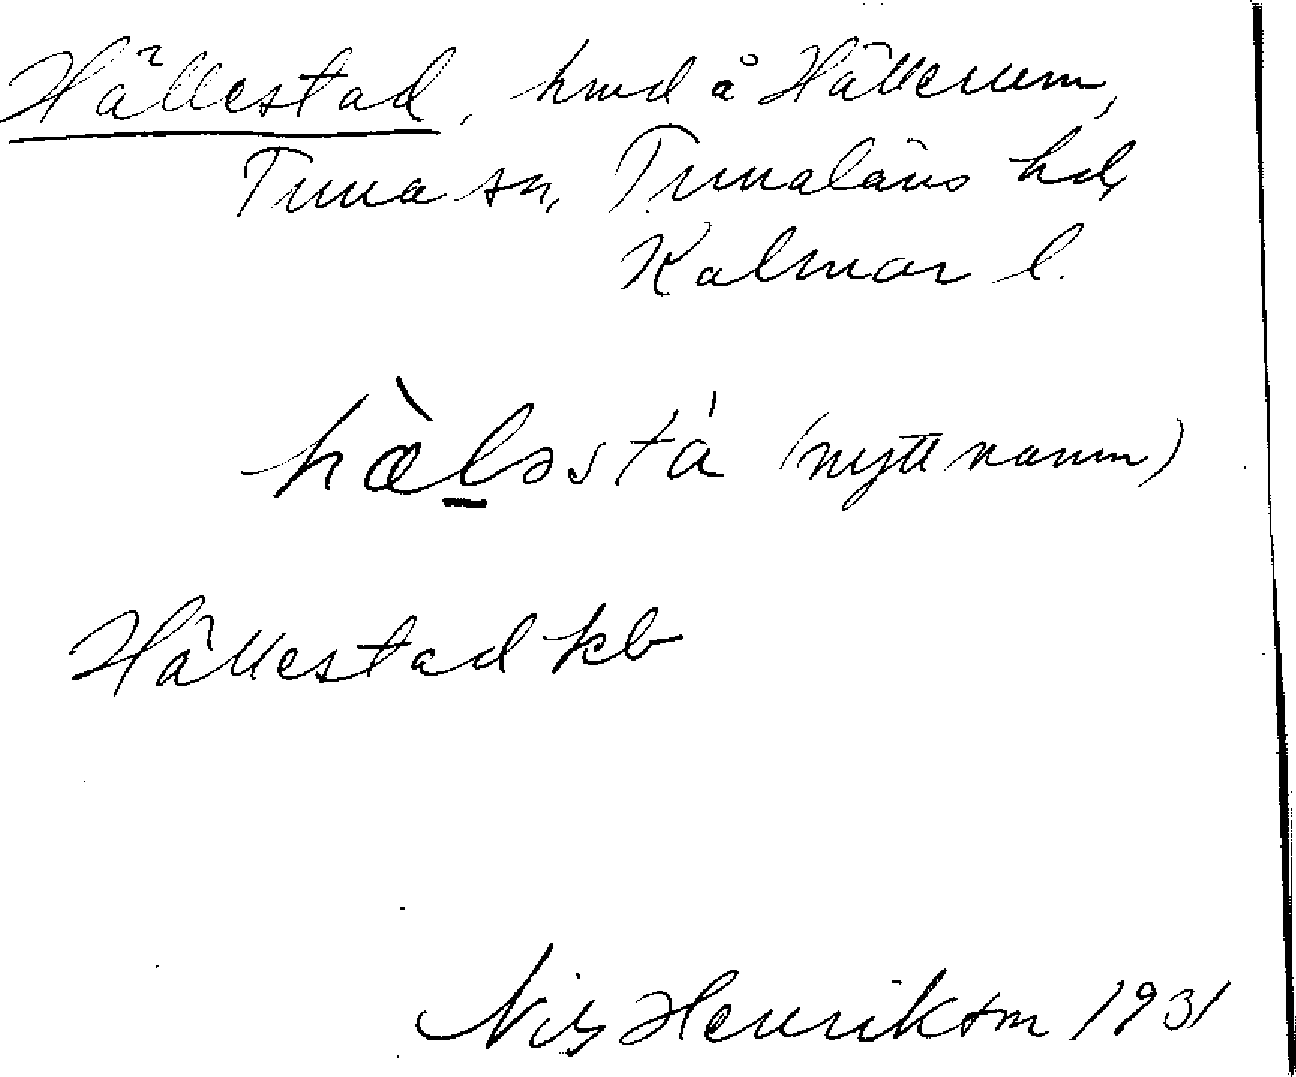 Hällestad, hmd å Hällerum,
Tuna sn, Tunaläns hd,
Kalmar l.
hæ̀lsstá (nytt namn)
Hällestad kb
Nils Henrikson 1931